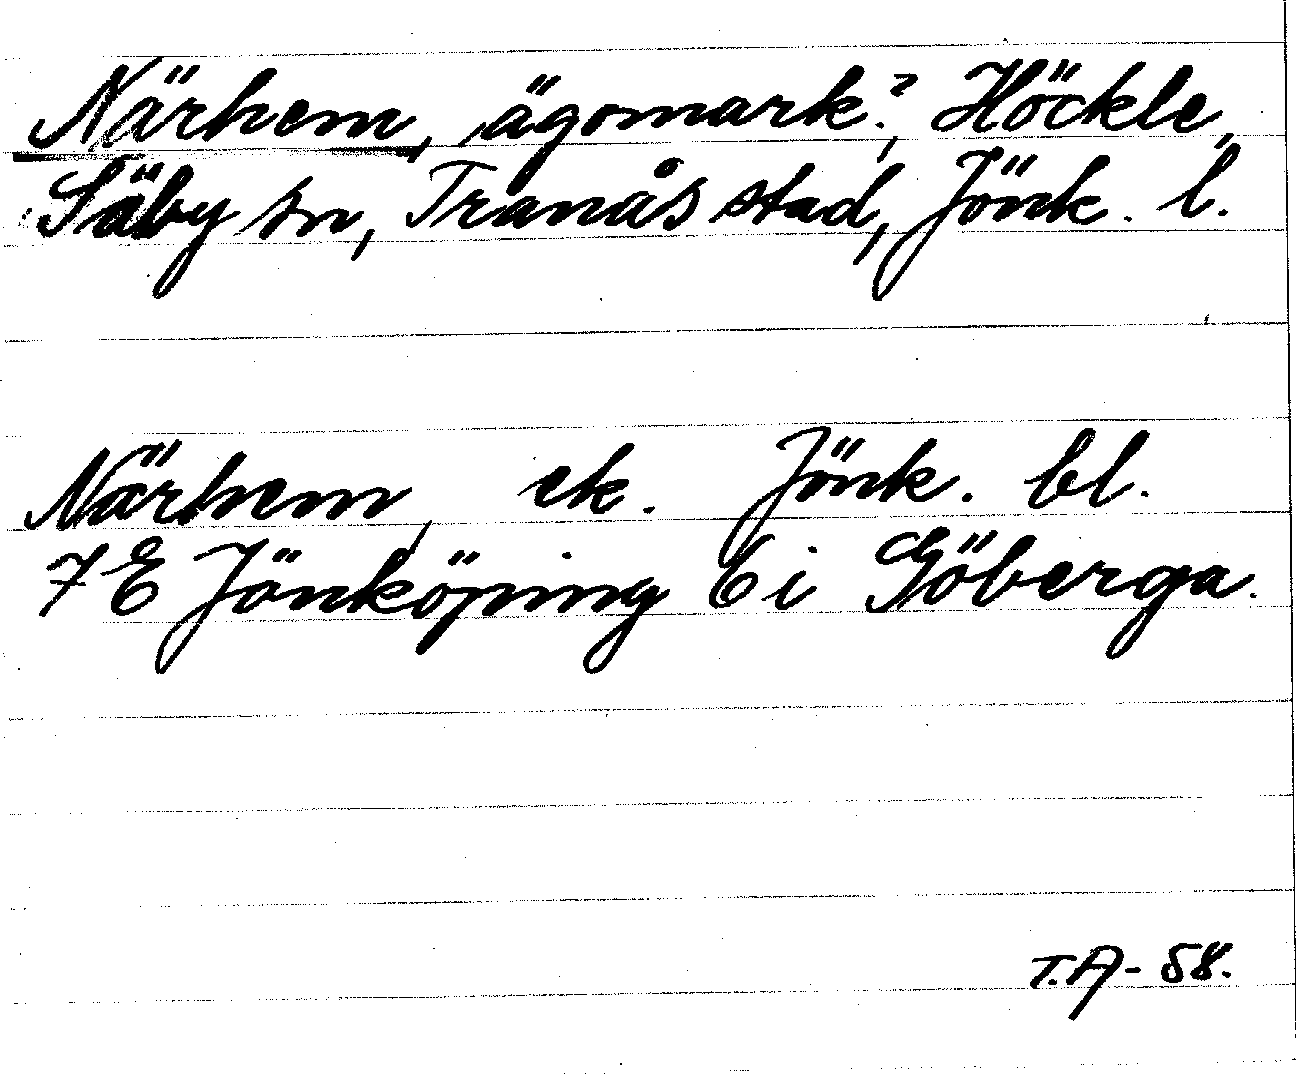 Närhem, ägomark?, Höckle,
Säby sn, Tranås stad, Jönk. l.
Närhem, ek. Jönk. bl.
7E Jönköping 6i Göberga.
T.A-58.